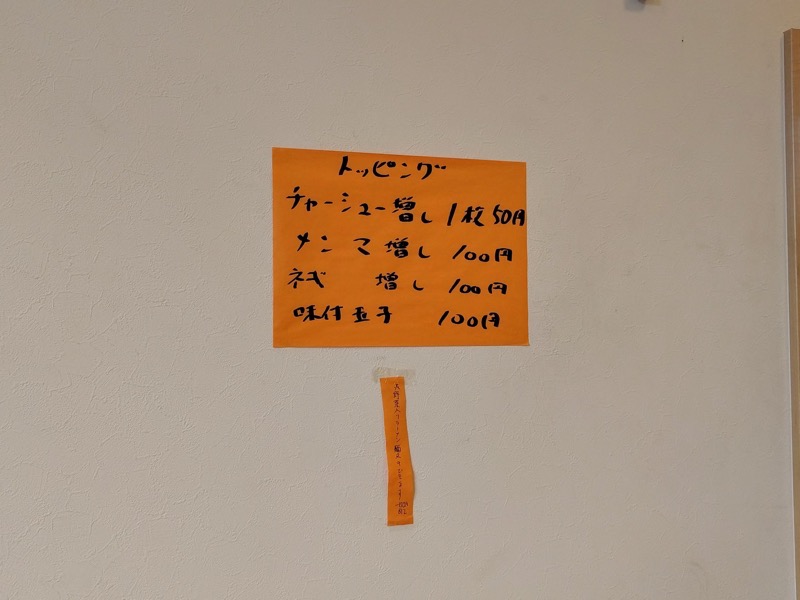 トッピング
チャーシュー増し 1枚 50円
メンマ増し 100円
ネギ 増し 100円
味付玉子 100円